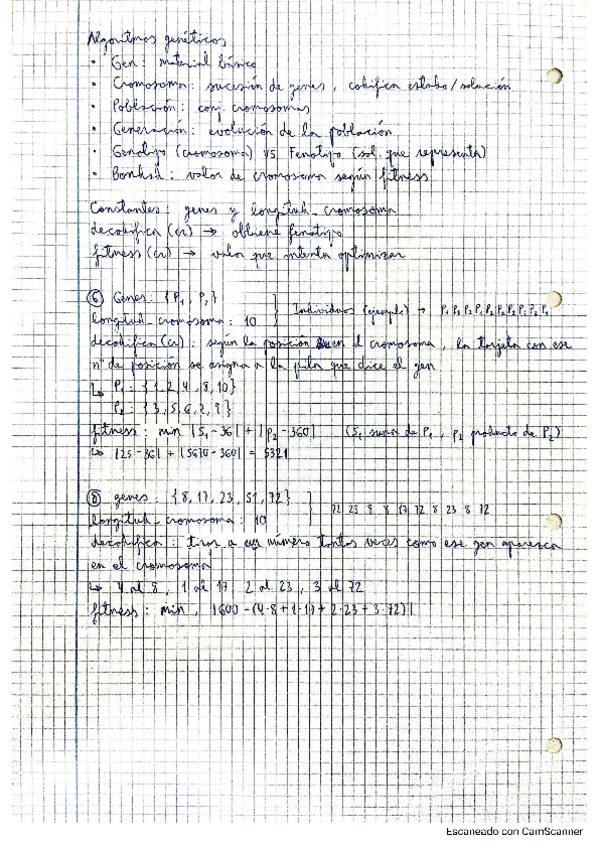 Algoritmos genéticos
• Gen: material básico
• Cromosoma: sucesión de genes, codifica estado/solución
• Población: conj. cromosomas
• Generación: evolución de la población
• Genotipo (cromosoma) vs Fenotipo (sol. que representa)
• Bondad: valor de cromosoma según fitness
Constantes: genes y longitud_cromosoma
decodifica (cr) → obtiene fenotipo
fitness (cr) → valor que intenta optimizar
⑥ Genes: {P₁, P₂} Individuos (ejemplo) →
longitud_cromosoma: 10
decodifica (cr): según la posición en el cromosoma, la tarjeta con ese
nº de posición se asigna a la pila que dice el gen
↳ P₁: {1, 2, 4, 8, 10}
P₂: {3, 5, 6, 7, 9}
fitness: min |S₁ - 36| + |P₂ - 360| (S₁ suma de P₁, P₂ producto de P₂)
↳ |25 - 36| + |5670 - 360| = 5321
⑧ genes: {8, 17, 23, 51, 72}
longitud_cromosoma: 10 72 23 8 8 17 72 8 23 8 72
decodifica: tirar a número tantas veces como ese gen aparezca
en el cromosoma
↳ 4 al 8, 1 al 17 2 al 23, 3 al 72
fitness: min, |600 - (4·8 + 1·17 + 2·23 + 3·72)|
Escaneado con CamScanner